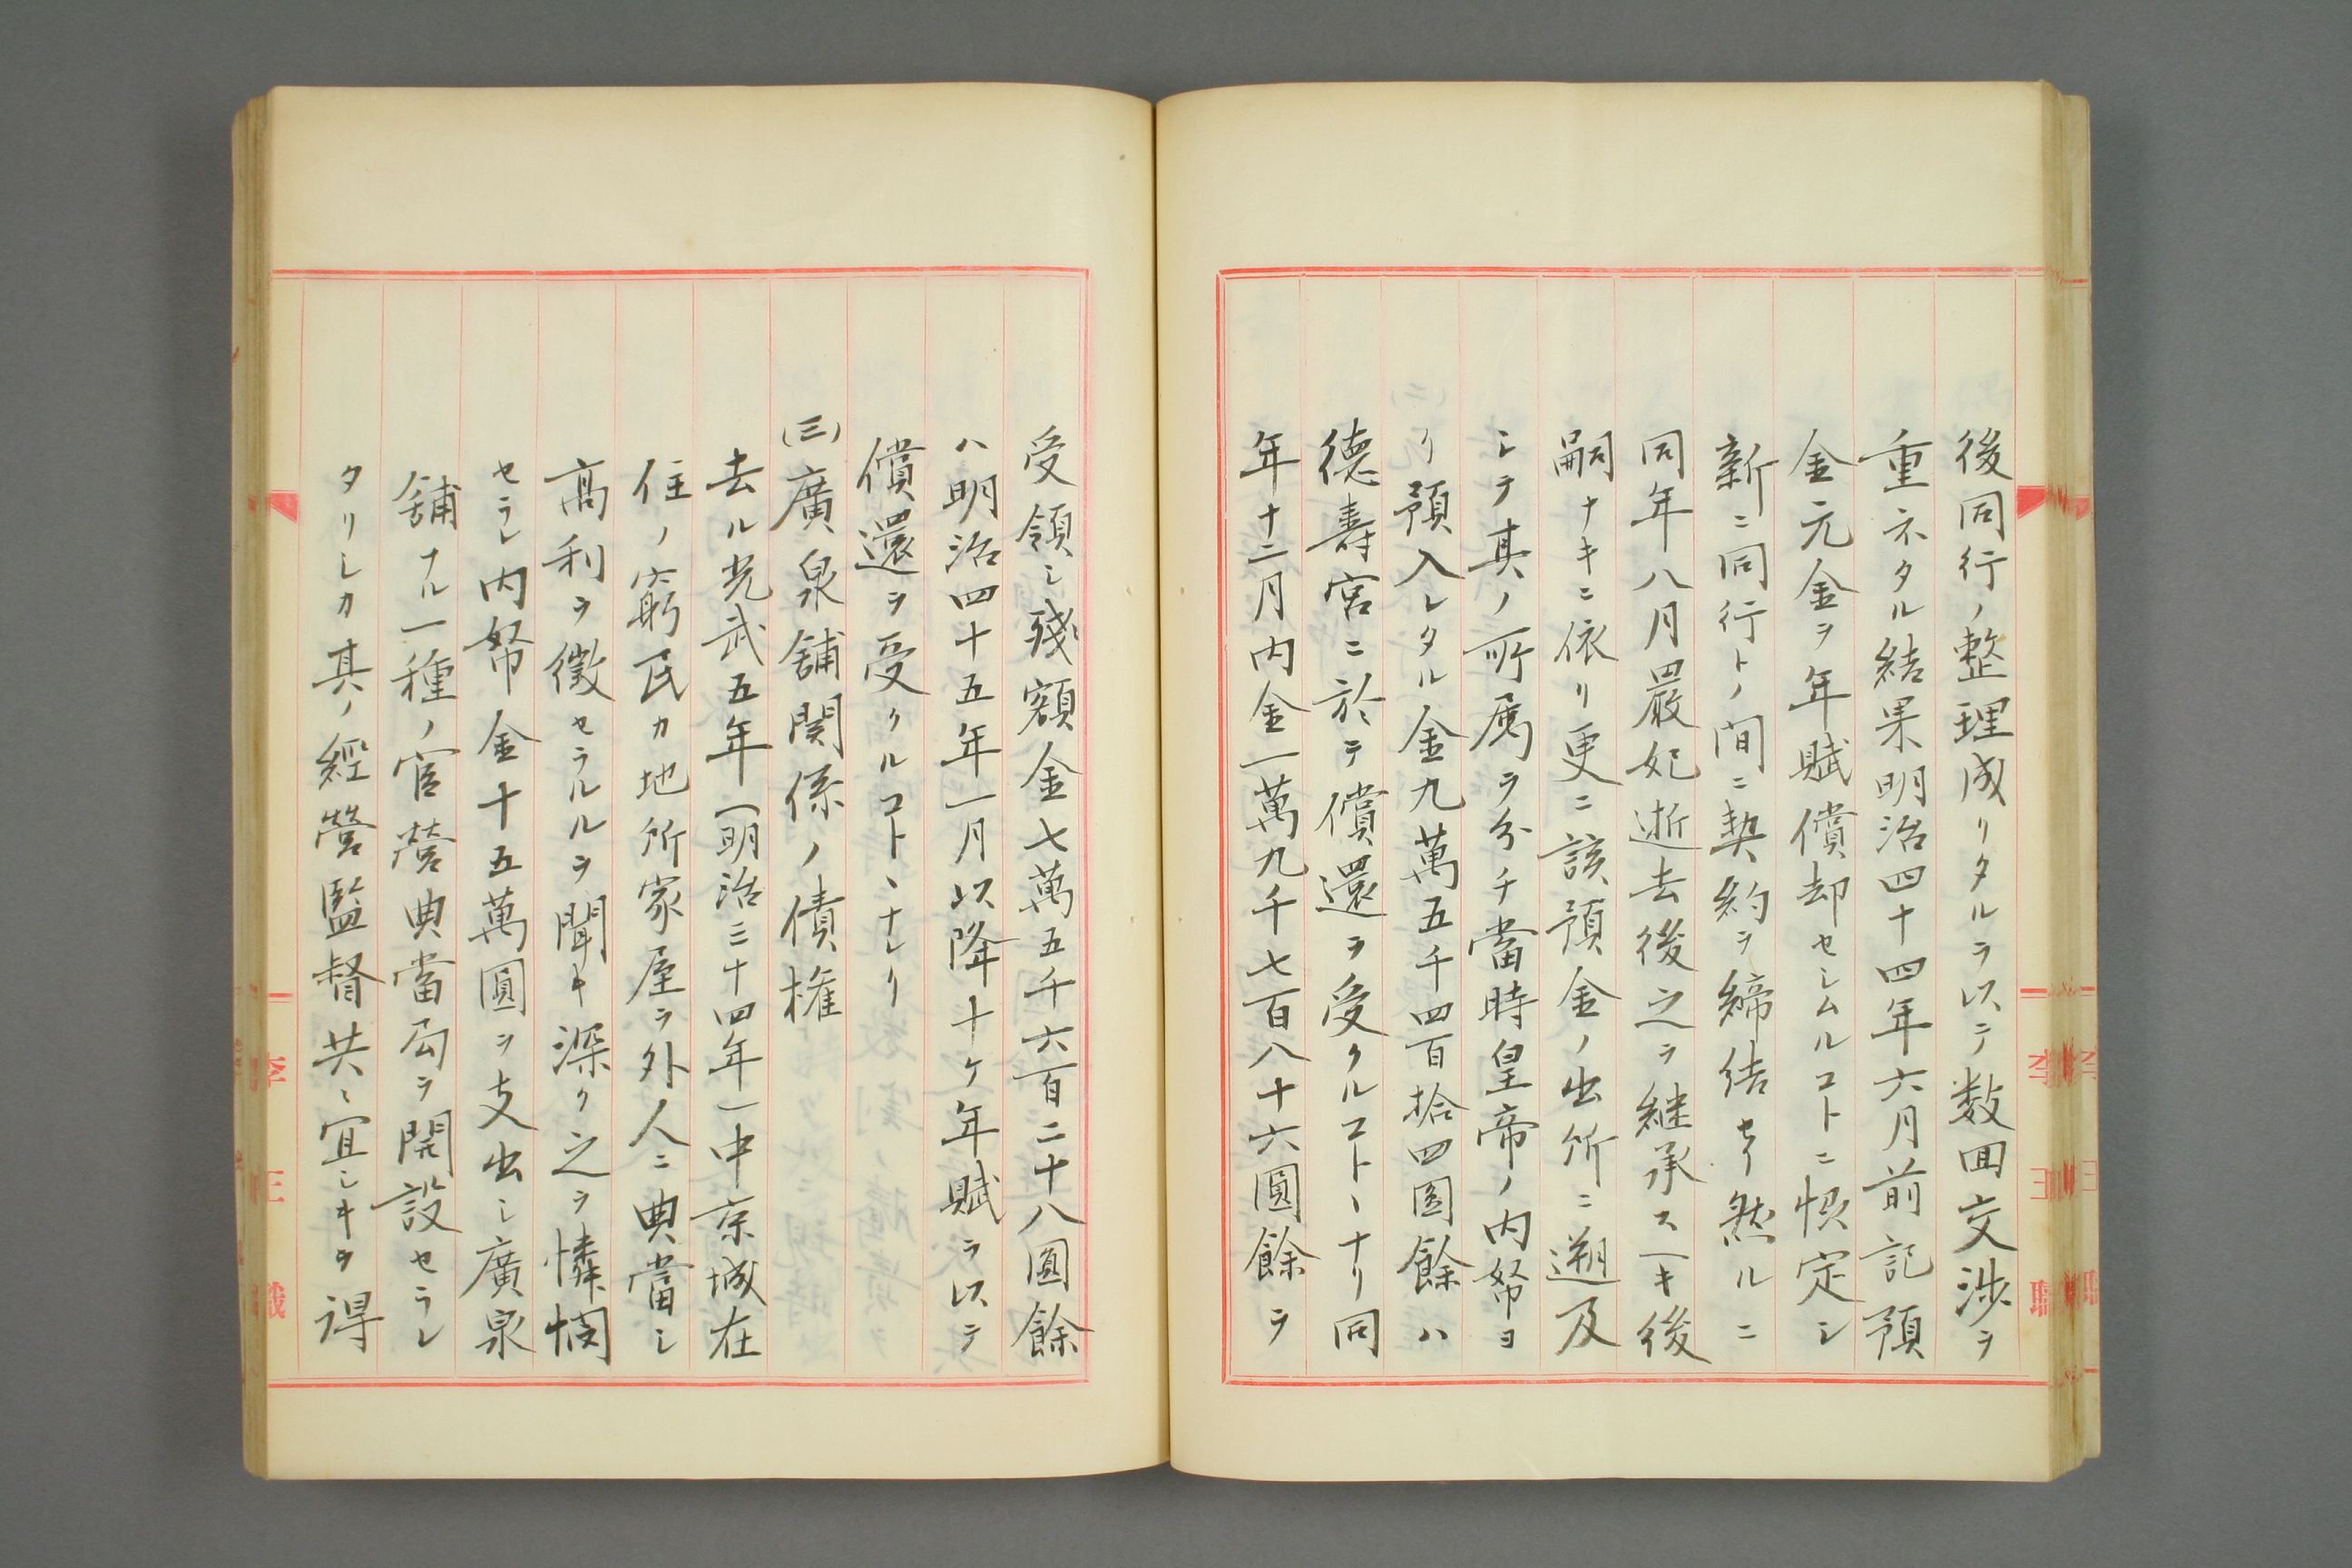 後同行ノ整理成リタルヲ以テ数回交渉ヲ
重ネタル結果明治四十四年六月前記預
金元金ヲ年賦償却セシムルコトニ協定シ
新ニ同行トノ間ニ契約ヲ締結セリ然ルニ
同年八月嚴妃逝去後之ヲ継承スヘキ後
嗣ナキニ依リ更ニ該預金ノ出所ニ遡及
シテ其ノ所属ヲ分チ當時皇帝ノ内帑ヨ
リ預入レタル金九萬五千四百拾四圓餘ハ
德壽宮ニ於テ償還ヲ受クルコトヽナリ同
年十二月内金一萬九千七百八十六圓餘ヲ
受領シ残額金七萬五千六百二十八圓餘
ハ明治四十五年一月以降十ケ年賦ヲ以テ
償還ヲ受クルコトヽナレリ
(三)廣泉舖関係ノ債権
去ル光武五年(明治三十四年)中京城在
住ノ窮民カ地所家屋ヲ外人ニ典當シ
高利ヲ徴セラルルヲ聞キ深ク之ヲ憐憫
セラレ内帑金十五萬圓ヲ支出シ廣泉
舖ナル一種ノ官營典當局ヲ開設セラレ
タリシカ其ノ經營監督共ニ宜シキヲ得
李王職